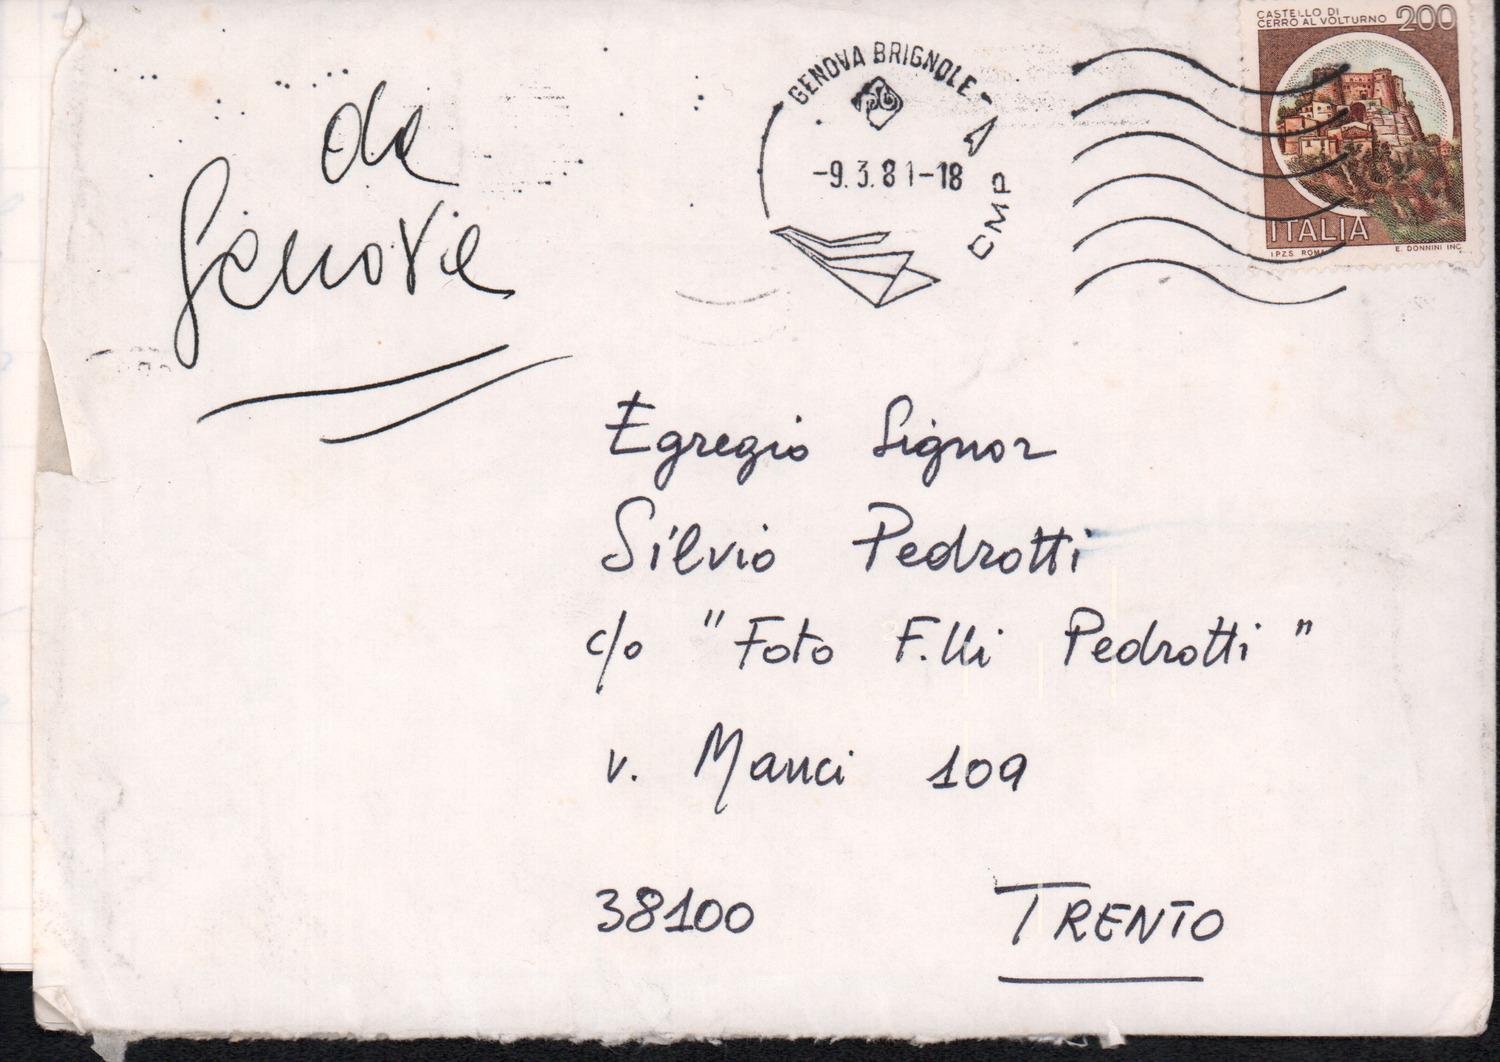 CASTELLO DI
CERRO AL VOLTURNO 200
GENOVA BRIGNOLE - A
CMP
-9.3.81-18
ITALIA
I.P.Z.S. ROMA E. DONNINI INC.
da
Genova
Egregio Signor
Silvio Pedrotti
c/o "Foto F.lli Pedrotti"
v. Manci 109
38100 TRENTO